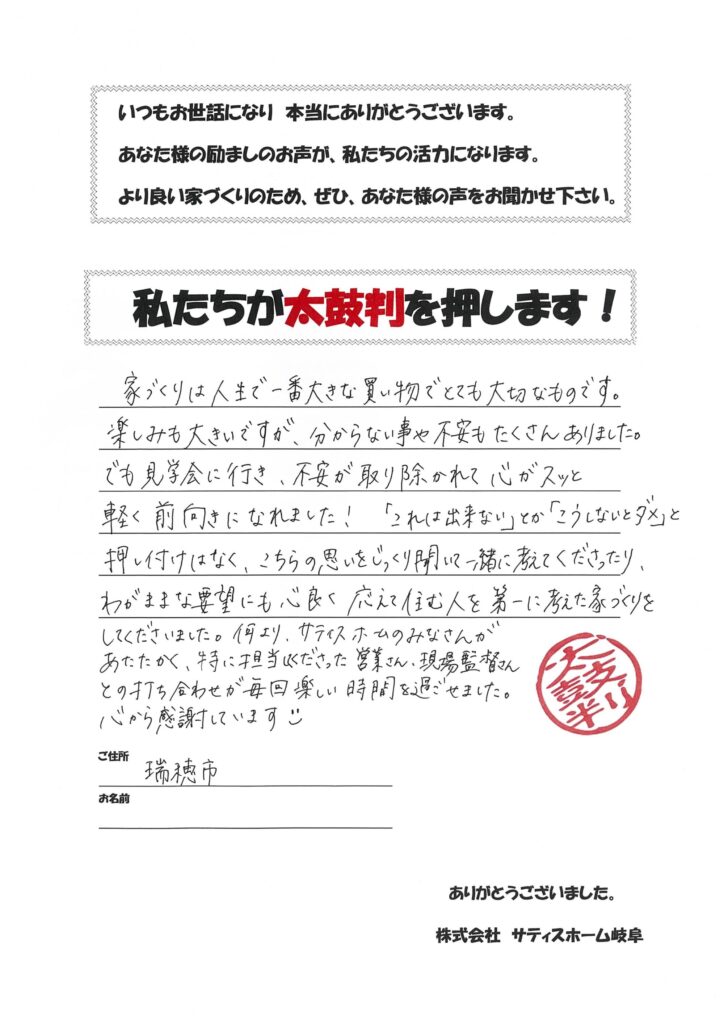 いつもお世話になり 本当にありがとうございます。
あなた様の励ましのお声が、私たちの活力になります。
より良い家づくりのため、ぜひ、あなた様の声をお聞かせ下さい。
私たちが太鼓判を押します！
家づくりは人生で一番大きな買い物でとても大切なものです。
楽しみも大きいですが、分からない事や不安もたくさんありました。
でも見学会に行き、不安が取り除かれて心がスッと
軽く前向きになれました！「これは出来ない」とか「こうしないとダメ」と
押し付けはなく、こちらの思いをじっくり聞いて一緒に考えてくださったり、
わがままな要望にも心良く応えて住む人を第一に考えた家づくりを
してくださいました。何より、サティスホームのみなさんが
あたたかく、特に担当くださった営業さん、現場監督さん
との打ち合わせが毎回楽しい時間を過ごせました。
心から感謝しています
太鼓判
ご住所 瑞穂市
お名前
ありがとうございました。
株式会社 サティスホーム岐阜